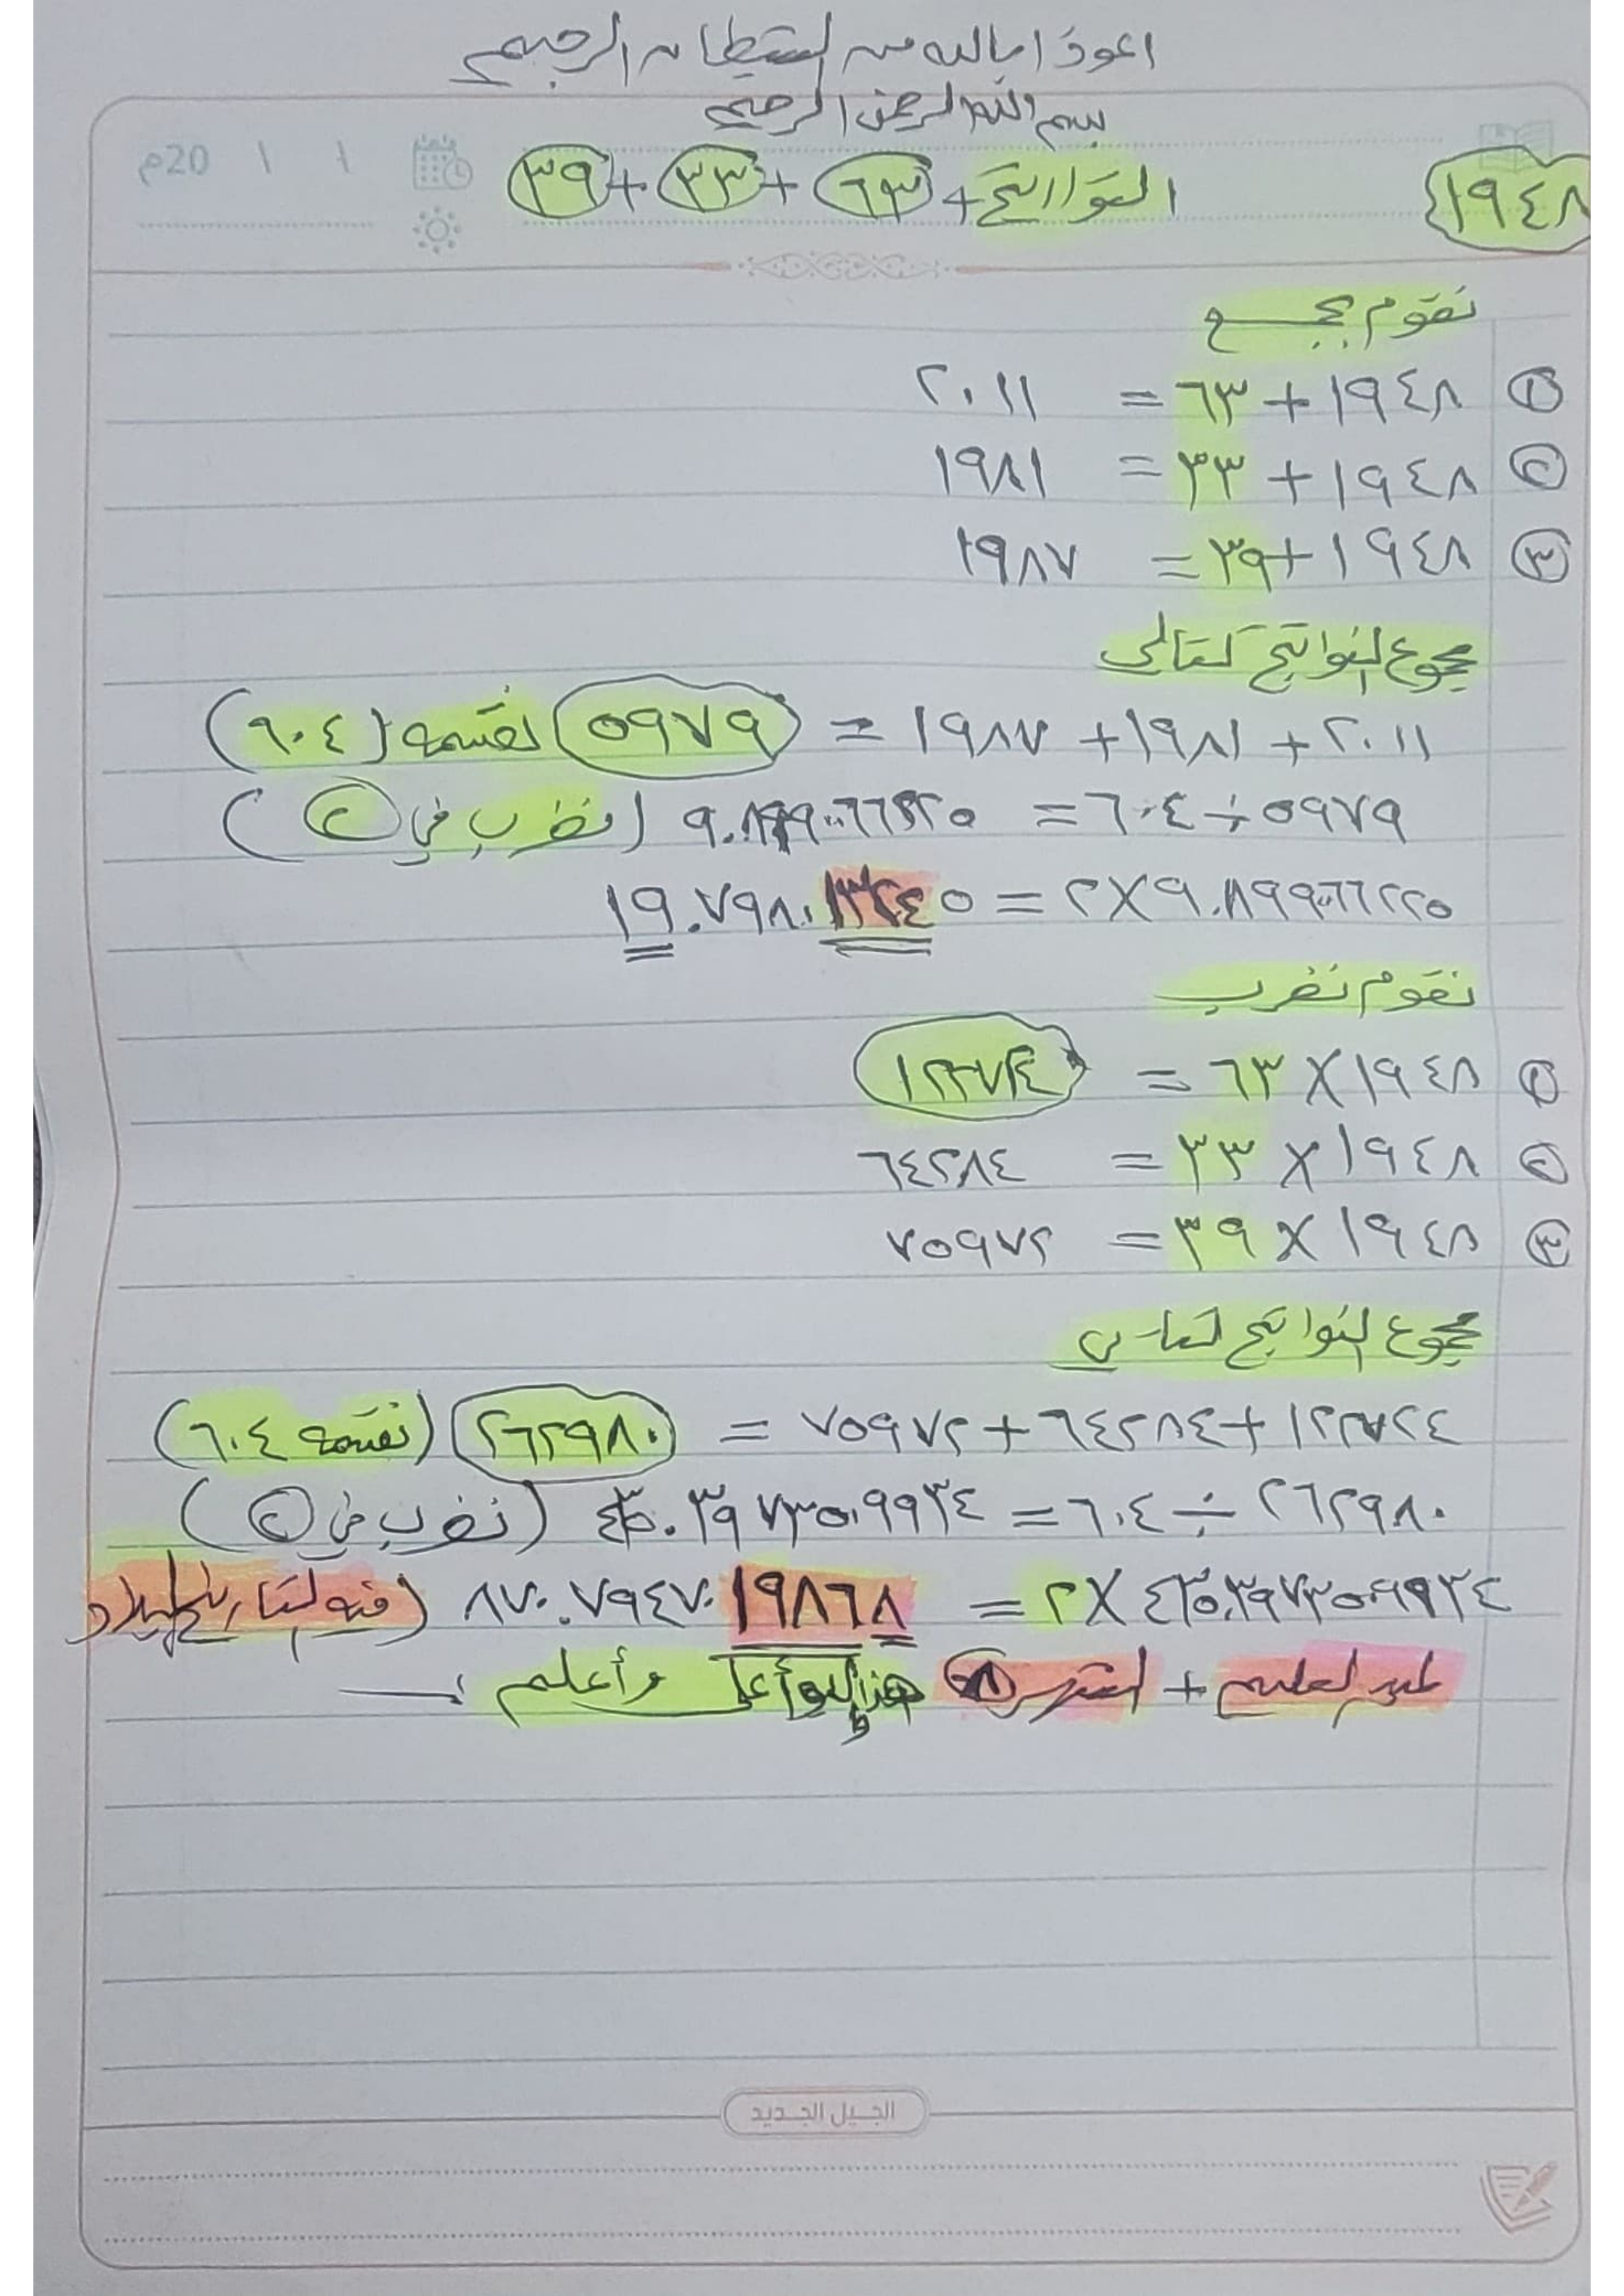 اعوذ بالله من الشيطان الرجيم
بسم الله الرحمن الرحيم
20م
١٩٤٨ التواريخ + ٦٣ + ٣٣ + ٣٩
نقوم بجمع
١ ١٩٤٨ + ٦٣ = ٢٠١١
٢ ١٩٤٨ + ٣٣ = ١٩٨١
٣ ١٩٤٨ + ٣٩ = ١٩٨٧
مجموع النواتج كتالي
٢٠١١ + ١٩٨١ + ١٩٨٧ = ٥٩٧٩ نقسمه (٦٠٤)
٥٩٧٩ ÷ ٦٠٤ = (نضرب في ٢)
٩.٨٩٩٠٠٦٦٢٢٥ × ٢ = ١٩.٧٩٨٠١٣٢٤٥
نقوم نضرب
١ ١٩٤٨ × ٦٣ =
٢ ١٩٤٨ × ٣٣ = ٦٤٢٨٤
٣ ١٩٤٨ × ٣٩ = ٧٥٩٧٢
مجموع النواتج
١٢٢٧٢٤ + ٦٤٢٨٤ + ٧٥٩٧٢ = ٢٦٢٩٨٠ (نقسمه ٦٠٤)
٢٦٢٩٨٠ ÷ ٦٠٤ = ٤٣٥.٣٩٧٣٥٠٩٩٣٤ (نضرب في ٢)
٤٣٥.٣٩٧٣٥٠٩٩٣٤ × ٢ = ٨٧٠.٧٩٤٧٠١٩٨٦٨ (فيه التاريخ الميلاد
+ وأعلم
الجيل الجديد